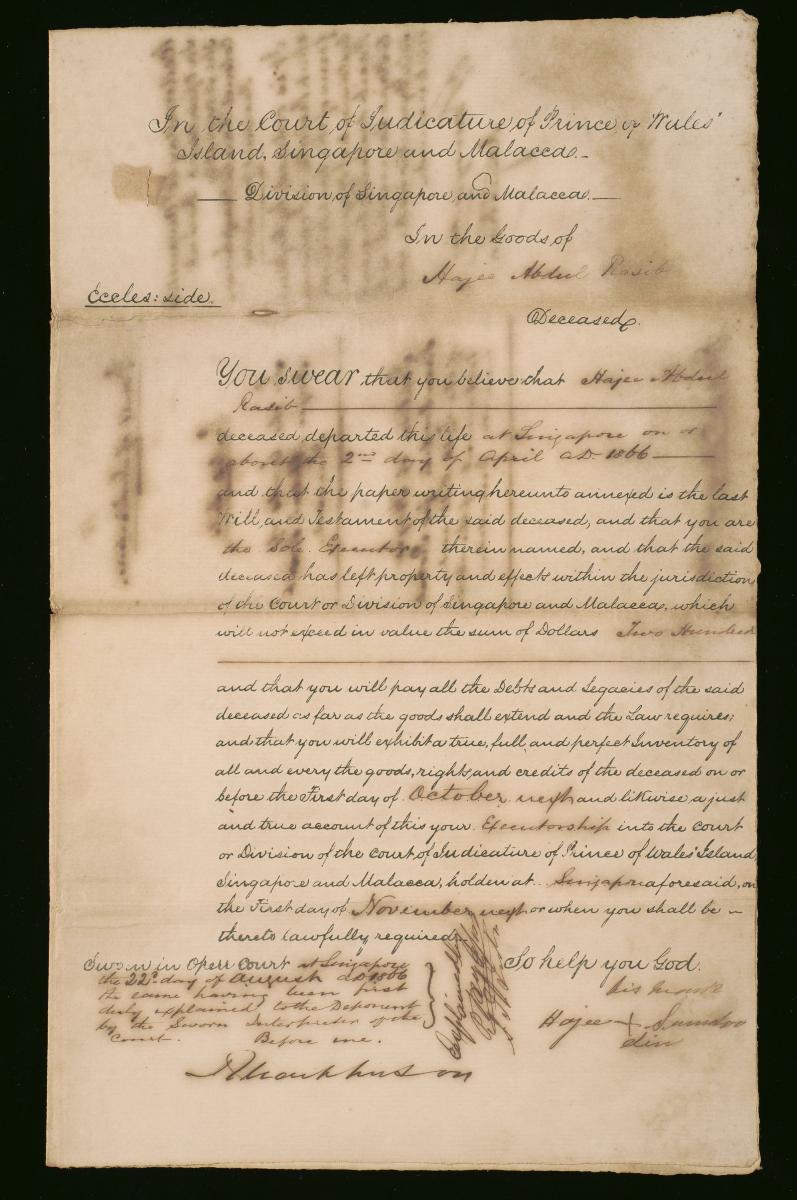 In the Court of Judicature of Prince of Wales'
Island, Singapore and Malacca.
Division of Singapore and Malacca.
In the Goods of
Hajee Abdul Rasib
Eccles: side.
Deceased.
You Swear that you believe that Hajee Abdul
Rasib
deceased departed this life at Singapore on or
about the 2nd day of April AD 1866
and that the paper writing hereunto annexed is the last
Will and Testament of the said deceased, and that you are
the Sole Executor therein named, and that the said
deceased has left property and effects within the jurisdiction
of the Court or Division of Singapore and Malacca, which
will not exceed in value the sum of Dollars Two Hundred
and that you will pay all the Debts and Legacies of the said
deceased as far as the goods shall extend and the Law requires;
and that you will exhibit a true, full and perfect Inventory of
all and every the goods, rights and credits of the deceased on or
before the First day of October next and likewise a just
and true account of this your Executorship into the Court
or Division of the Court of Judicature of Prince of Wales' Island,
Singapore and Malacca, holden at Singapore aforesaid, on
the First day of November next or when you shall be
thereto lawfully required.
Sworn in Open Court at Singapore
the 22d. day of August AD 1866
the same having been first
duly explained to the Deponent
by the Sworn Interpreter of the
Court. Before me.
Explained by
So help you God.
his mark
Hajee +
din